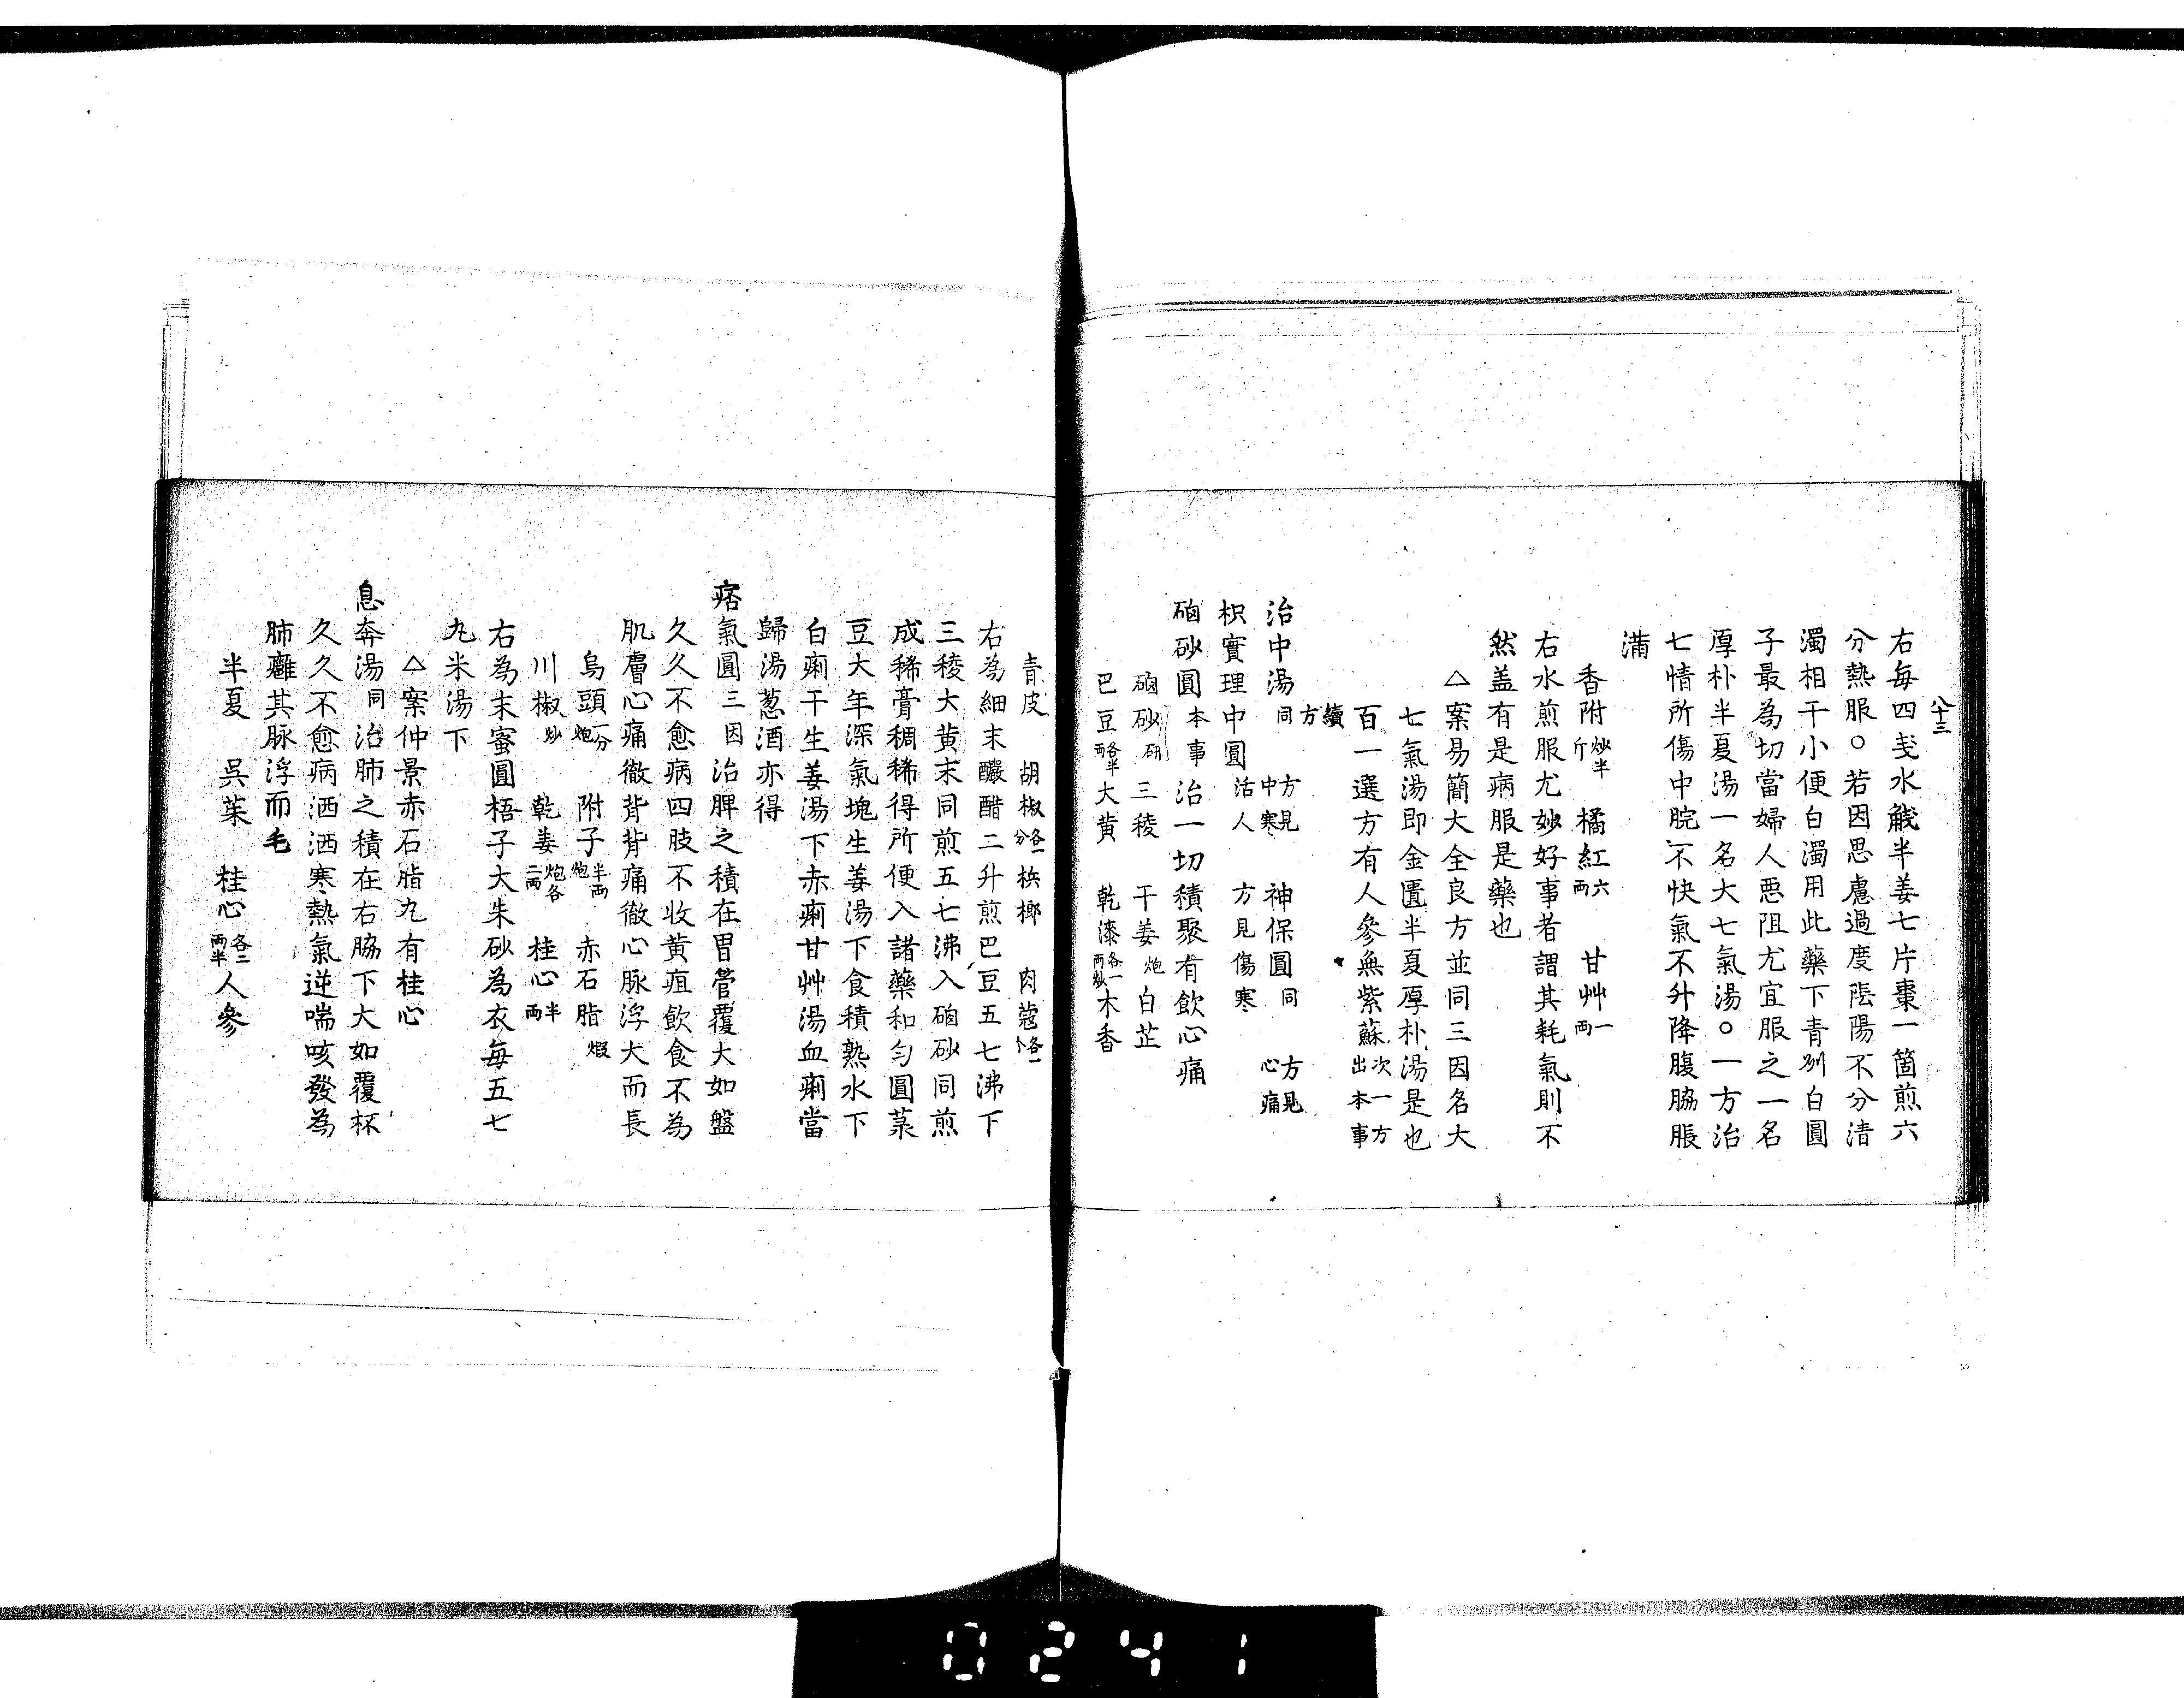 八十三
右每四戔水觥半姜七片棗一箇煎六
分熱服○若因思慮過度陰陽不分清
濁相干小便白濁用此藥下青刕白圓
子最為切當婦人惡阻尤宜服之一名
厚朴半夏湯一名大七氣湯○一方治
七情所傷中脘不快氣不升降腹脇脹
滿
香附炒半斤 橘紅六両 甘艸一両
右水煎服尤妙好事者謂其耗氣則不
然盖有是病服是藥也
△案易簡大全良方並同三因名大
七氣湯即金匱半夏厚朴湯是也
百一選方有人參無紫蘇次一方出本事
續方
治中湯同 方見中寒 神保圓同 方見心痛
枳實理中圓活人 方見傷寒
硇砂圓本事 治一切積聚有飲心痛
硇砂研 三稜 干姜炮 白芷
巴豆各半両 大黄 乾漆各一両炒 木香
青皮 胡椒各一分 梹榔 肉蔻各一个
右為細末釅醋二升煎巴豆五七沸下
三稜大黄末同煎五七沸入硇砂同煎
成稀膏稠稀得所便入諸藥和勻圓菉
豆大年深氣塊生姜湯下食積熟水下
白痢干生姜湯下赤痢甘艸湯血痢當
歸湯葱酒亦得
痞氣圓三因 治脾之積在胃管覆大如盤
久久不愈病四肢不收黄疸飲食不為
肌膚心痛徹背背痛徹心脉浮大而長
烏頭一分炮 附子半両炮 赤石脂煆
川椒炒 乾姜炮各二両 桂心半両
右為末蜜圓梧子大朱砂為衣每五七
丸米湯下
△案仲景赤石脂丸有桂心
息奔湯同 治肺之積在右脇下大如覆杯
久久不愈病洒洒寒熱氣逆喘咳發為
肺癰其脉浮而毛
半夏 吳茱 桂心各二両半 人參
0241